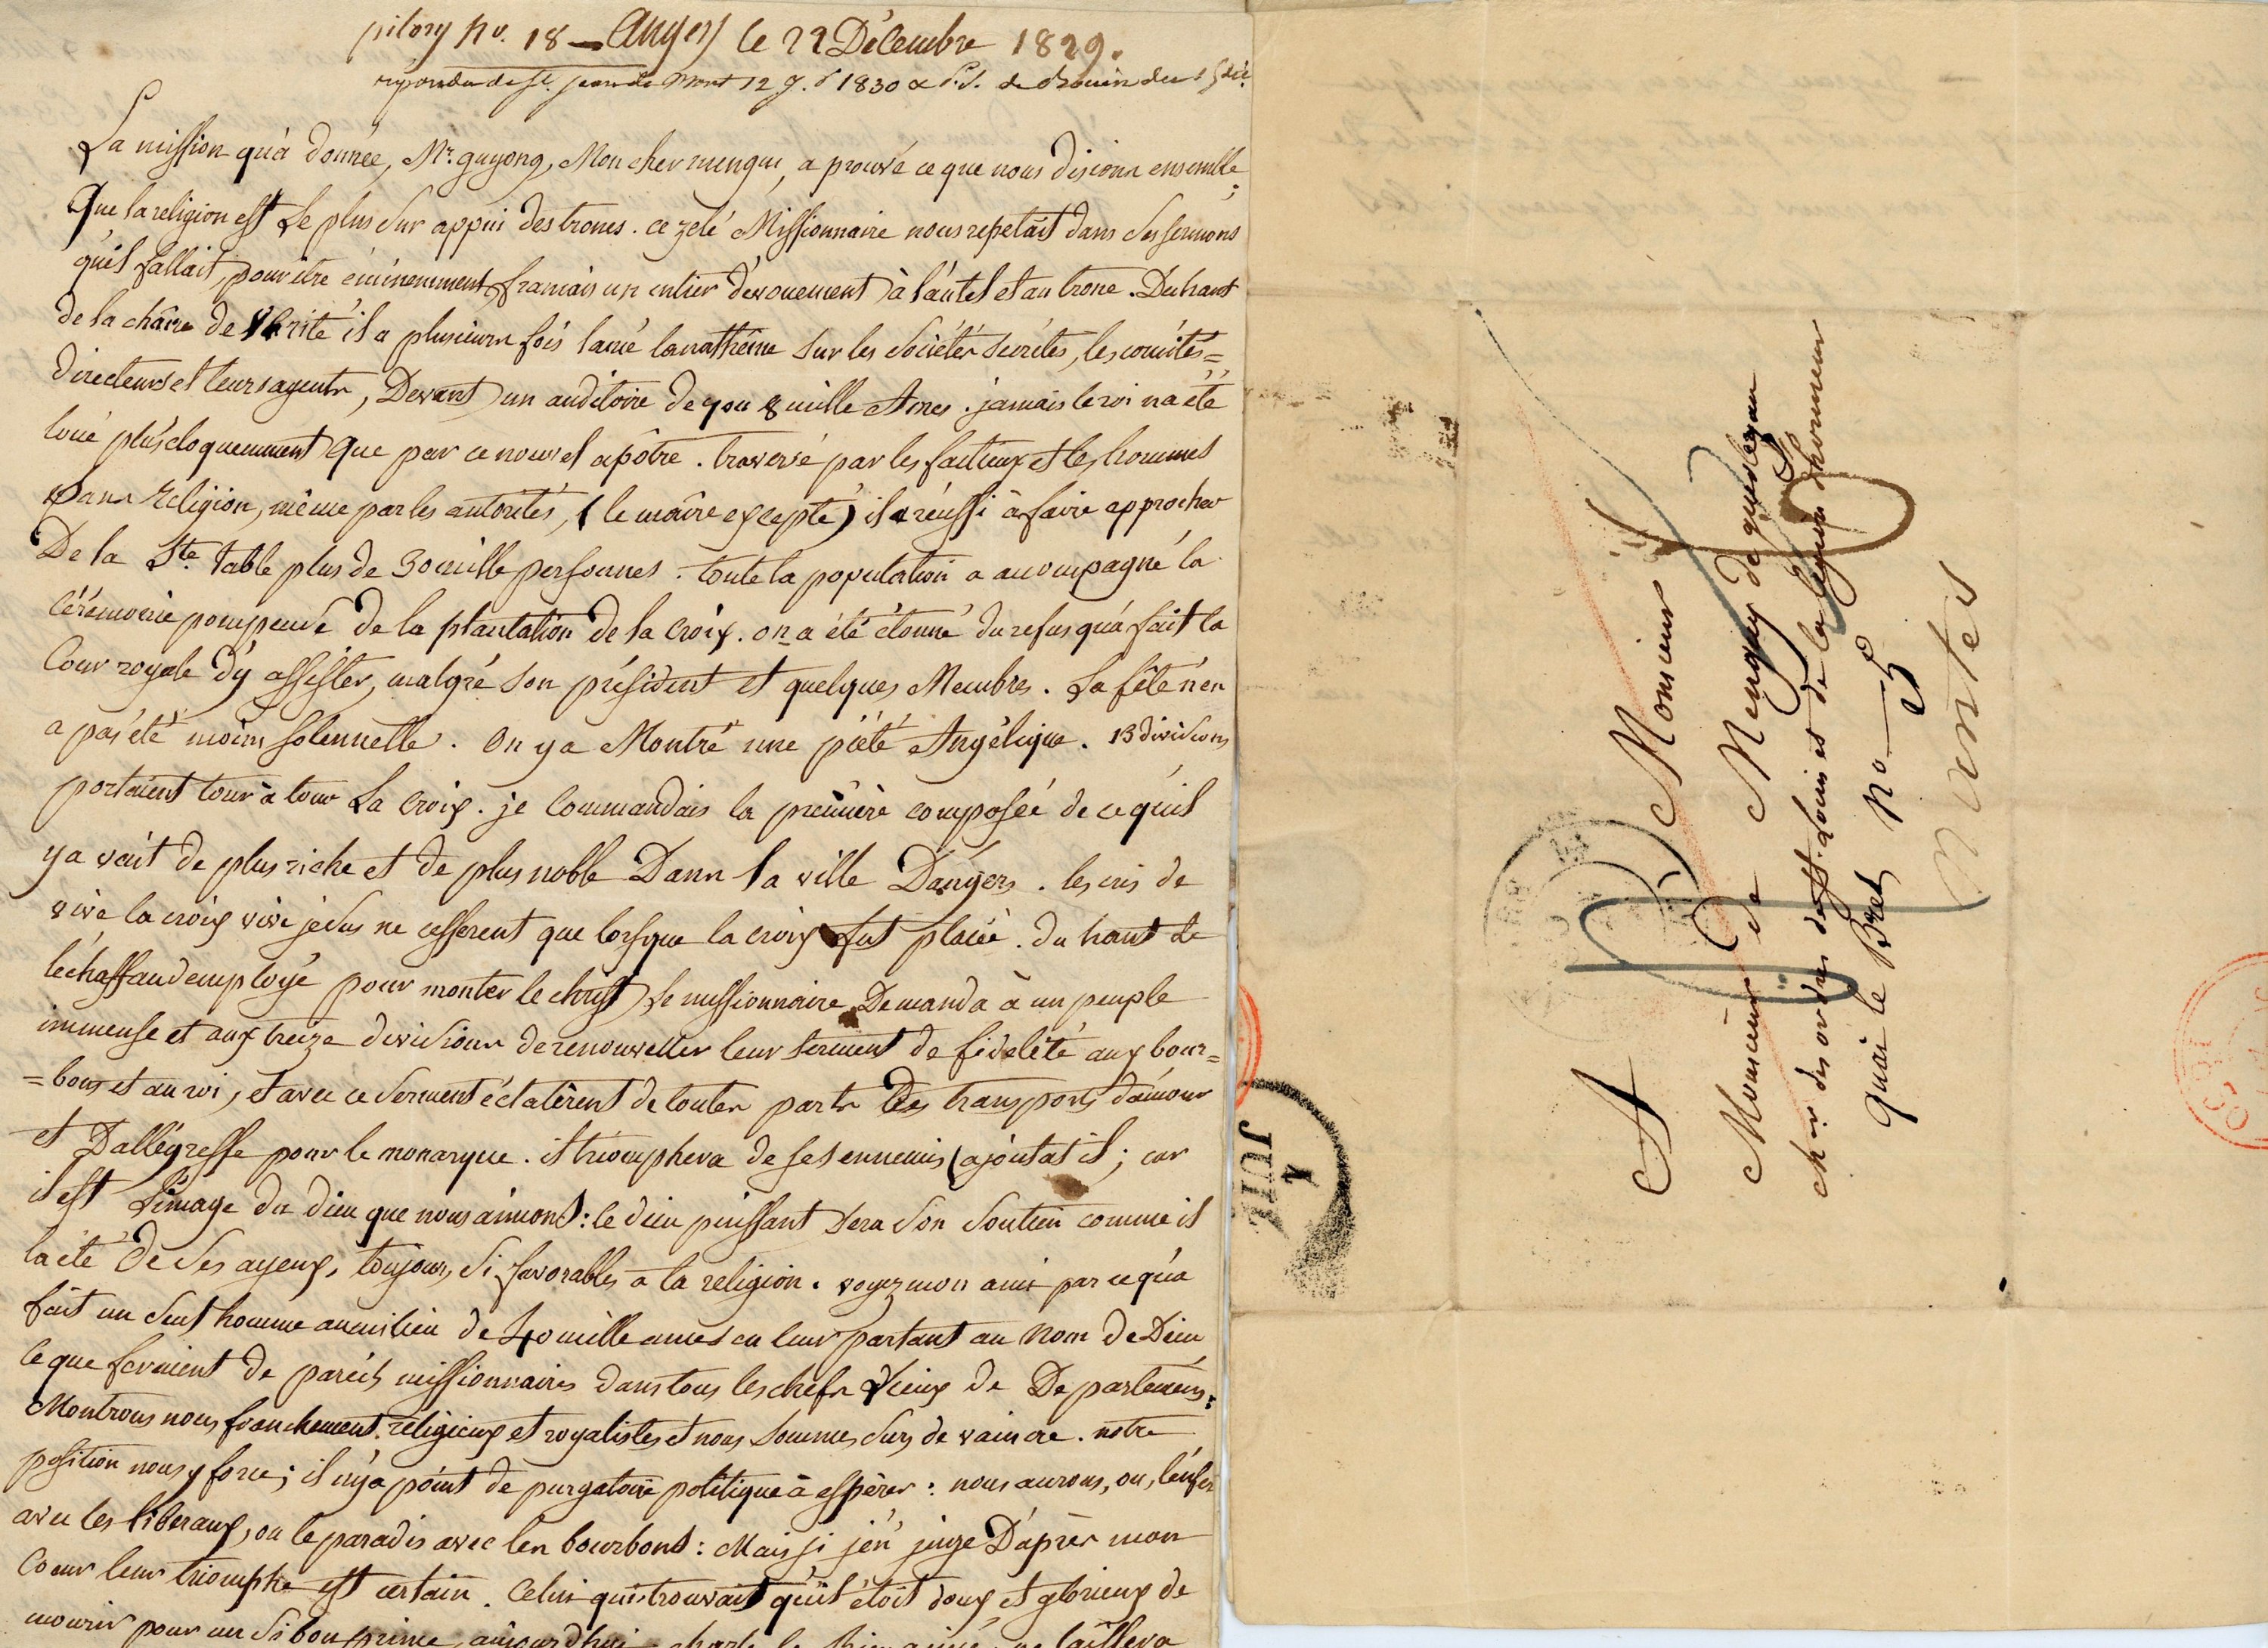 pilory no. 18 — Angers le 22 Décembre 1829.
répondu de St. jean de Mont 12 j. r 1830 & P.S. de du 15 dit.
La mission qu'a donnée, Mr. guyong, Mon cher menguy, a prouvé ce que nous disions ensemble;
Que la religion est Le plus sur appui des trones. ce zelé Missionnaire nous repetait dans ses sermons
qu'il fallait, pour être éminemment français un entier dévouement à l'autel et au trone. Du haut
de la chaire de vérité il a plusieurs fois lancé lanathême sur les sociétés secrétes, les comités=
directeurs et leurs agents, Devant un auditoire de 7 ou 8 mille Ames. jamais le roi n'a été
loué plus éloquemment Que par ce nouvel apôtre. traversé par les factieux et les hommes
sans religion, même par les autorités, (le maire excepté) il a réussi à faire approcher
De la Ste. table plus de 30 mille personnes. toute la population a accompagné la
Cérémonie pompeuse de la plantation de la croix. on a été étonné du refus qu'a fait la
Cour royale d'y assister, malgré son président et quelques Membres. La fête n'en
a pas été moins solennelle. On y a Montré une piété Angélique. 13 divisions
portaient tour à tour La croix. je commandais la première composée de ce qu'il
y avait de plus riche et de plus noble Dans la ville D'angers. les cris de
vive la croix vive jesus ne cesserent que lorsque la croix fut placée. du haut de
l'échaffaud employé pour monter le christ le missionnaire Demanda à un peuple
immense et aux treize divisions de renouveller leur serment de fidélité aux bour=
=bons et au roi, et avec ce serment éclatèrent de toutes parts des transports d'amour
et D'allégresse pour le monarque. il triomphera de ses ennemis (ajoutat il; car
il est L'image du dieu que nous aimons: le dieu puissant sera son soutien comme il
la été De ses ayeux, toujours si favorables à la religion. voyez mon ami par ce qu'a
fait un seul homme au milieu de 40 mille ames en leur parlant au nom de Dieu
ce que feraient de pareils missionnaires dans tous les chefs Lieux de Departemens:
Montrons nous franchement réligieux et royalistes et nous sommes surs de vaincre. notre
position nous y force; il n'y a point de purgatoire politique à espérer: nous aurons, ou, l'enfer
avec les libéraux, ou le paradis avec les bourbons: Mais si j'en juge D'après mon
Coeur leur triomphe est certain. Celui qui trouvait qu'il étoit doux et glorieux de
mourir pour un si bon prince, aujourd'hui charle le bien aimé, ne laissera
A Monsieur
Monsieur de Menguy de
cher des ordres de St. Louis et de la légion d'honneur
quai le Bret No 5
Nantes